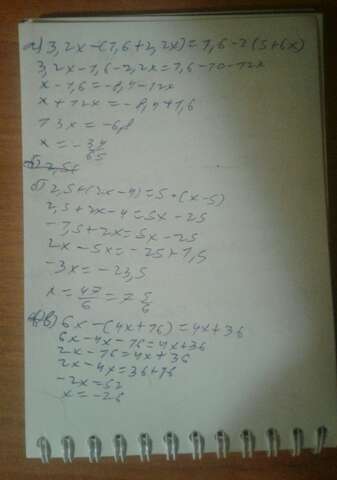 а) 3,2x-(1,6+2,2x)=1,6-2(5+6x)
3,2x-1,6-2,2x=1,6-10-12x
x-1,6=-8,4-12x
x+12x=-8,4+1,6
13x=-6,8
x=-34/65
б) 2,5+(2x-4)=5·(x-5)
2,5+2x-4=5x-25
-1,5+2x=5x-25
2x-5x=-25+1,5
-3x=-23,5
x=47/6=7 5/6
в) 6x-(4x+16)=4x+36
6x-4x-16=4x+36
2x-16=4x+36
2x-4x=36+16
-2x=52
x=-26